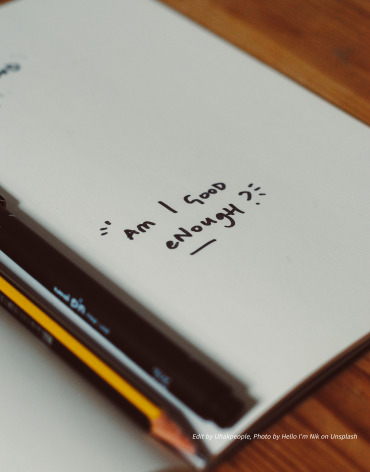 Am I Good
eNougH?
Edit by Uhakpeople, Photo by Hello I'm Nik on Unsplash